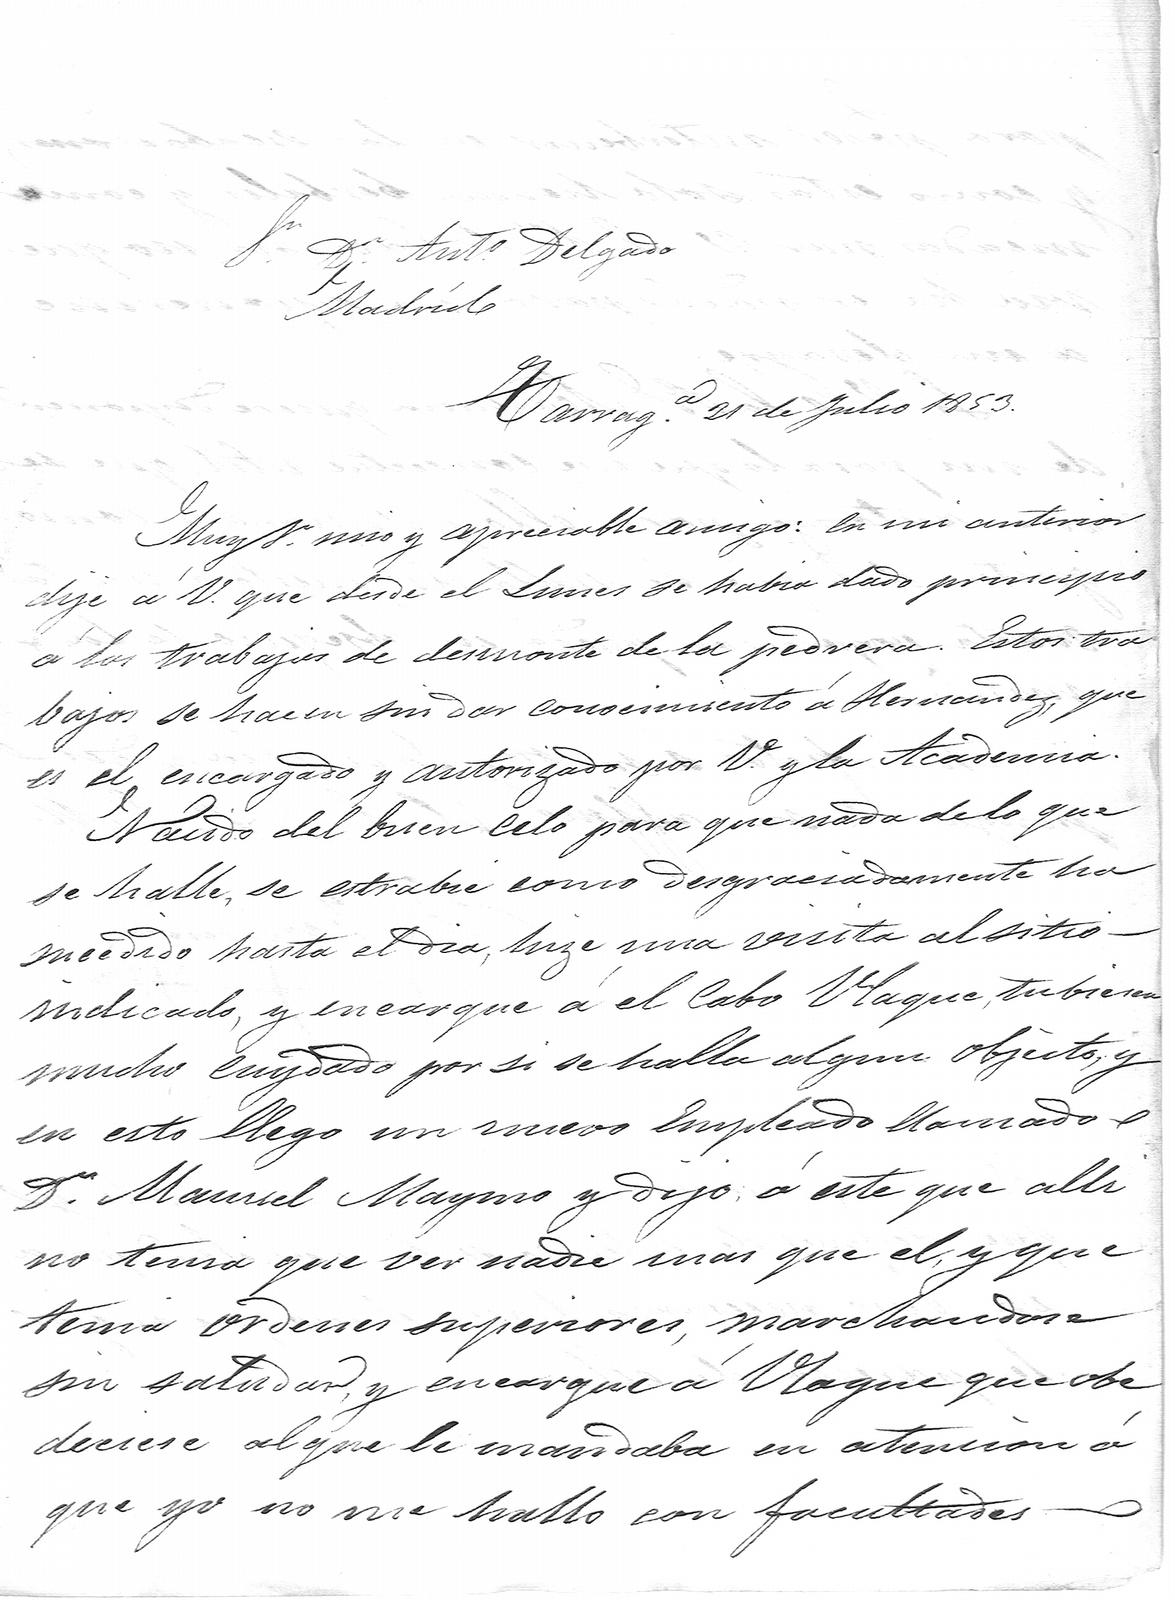 Sr. Dn. Anto. Delgado
Madrid
Tarrag.a 21 de Julio 1853.
Muy Sr. mio y apreciable amigo: en mi anterior
dije á V. que desde el Lunes se habia dado principio
á los trabajos de desmonte de la pedrera. Estos tra
bajos se hacen sin dar conocimiento á Hernandez, que
es el encargado y autorizado por V. y la Academia.
del buen celo para que nada de lo que
se halle, se estrabie como desgraciadamente ha
sucedido hasta el dia, hize una visita al sitio
indicado, y encargue á el Cabo Vlaque, tubiesen
mucho cuydado por si se halla algun objecto, y
en esto llego un nuevo Empleado llamado
Dn. Manuel Maymo y dijo á este que alli
no tenia que ver nadie mas que el, y que
tenia ordenes superiores, marchandose
sin saludar, y encargue á Vlaque que obe
deciese al que le mandaba en atencion á
que yo no me hallo con facultades